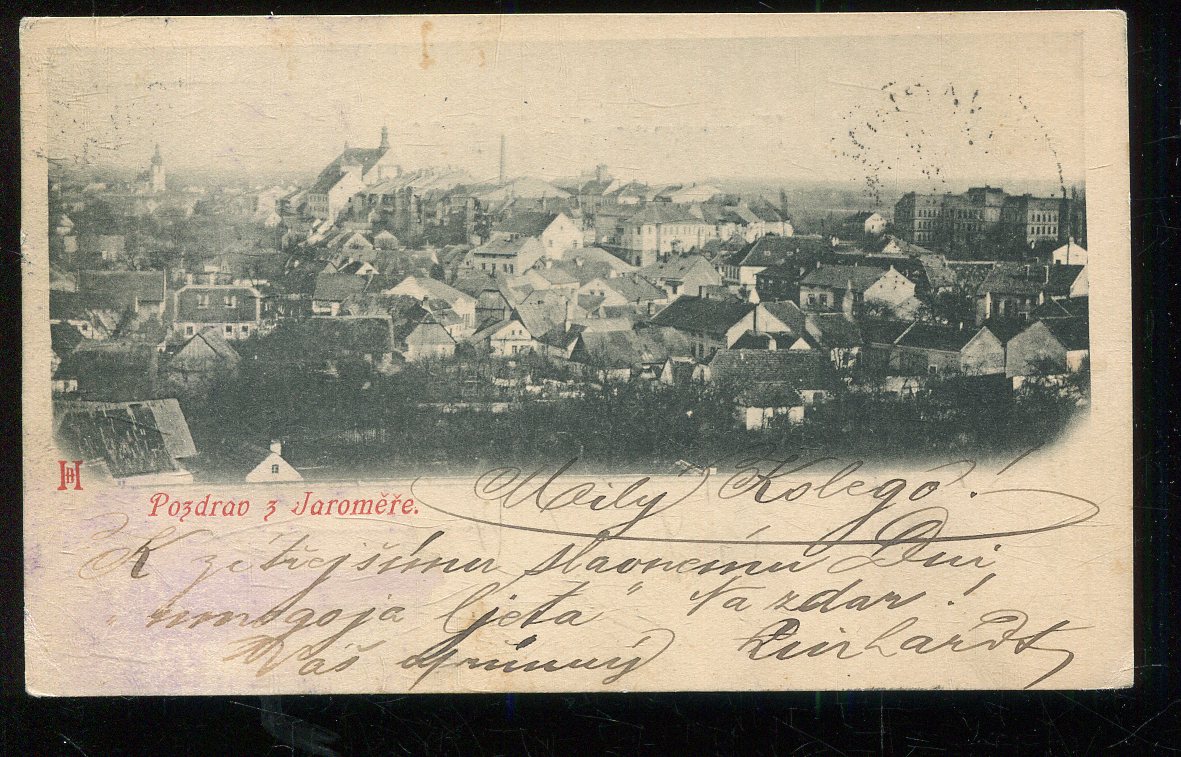 DH
Pozdrav z Jaroměře.
Milý Kolego!
K zítřejšímu slavnému Dni
"mnogoja ljeta" Na zdar!
Váš upřímný Linhardt